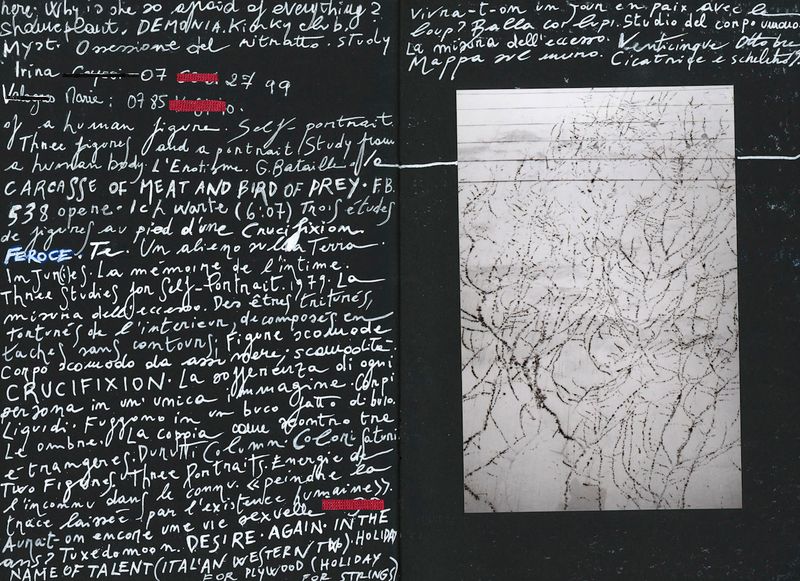 here. Why is she so afraid of everything?
Showerplant. DEMONIA. Kinky club.
Myst. Ossessione del ritratto. Study
Irina 07 27 99
Marie: 07 85
of a human figure. Self-portrait
Three figures and a portrait. Study from
a human body. L'Erotisme. G. Bataille.
CARCASSE OF MEAT AND BIRD OF PREY. F.B.
538 opere. Ich Warte (6:07) Trois études
de figures au pied d'une Crucifixion
FEROCE. Te. Un alieno sulla Terra.
Injuries. La mémoire de l'intime.
Three Studies for Self-Portrait. 1979. La
misura dell'eccesso. Des êtres triturés,
torturés de l'intérieur, decomposés en
taches sans contours. Figure scomode
Corpo scomodo da assumere. scomodità.
CRUCIFIXION. La sofferenza di ogni
persona in un'unica immagine. Corpi
liquidi. Fuggono in un buco fatto di buio.
Le ombre. La coppia come scontro tra
étrangeres. Durutti Column. Colori saturi
Two Figures. Three Portraits. Energie de
l'inconnu dans le connu. «peindre la
trace laissée par l'existence humaine».
Aurait-on encore une vie sexuelle
ans? Tuxedomoon. DESIRE. AGAIN. IN THE
NAME OF TALENT (ITALIAN WESTERN TWO). HOLIDAY
FOR PLYWOOD (HOLIDAY
FOR STRINGS)
Vivra-t-on un jour en paix, avec le
loup? Balla coi lupi. Studio del corpo umano.
La misura dell'eccesso. Venticinque Ottobre
Mappa sul muro. Cicatrice e